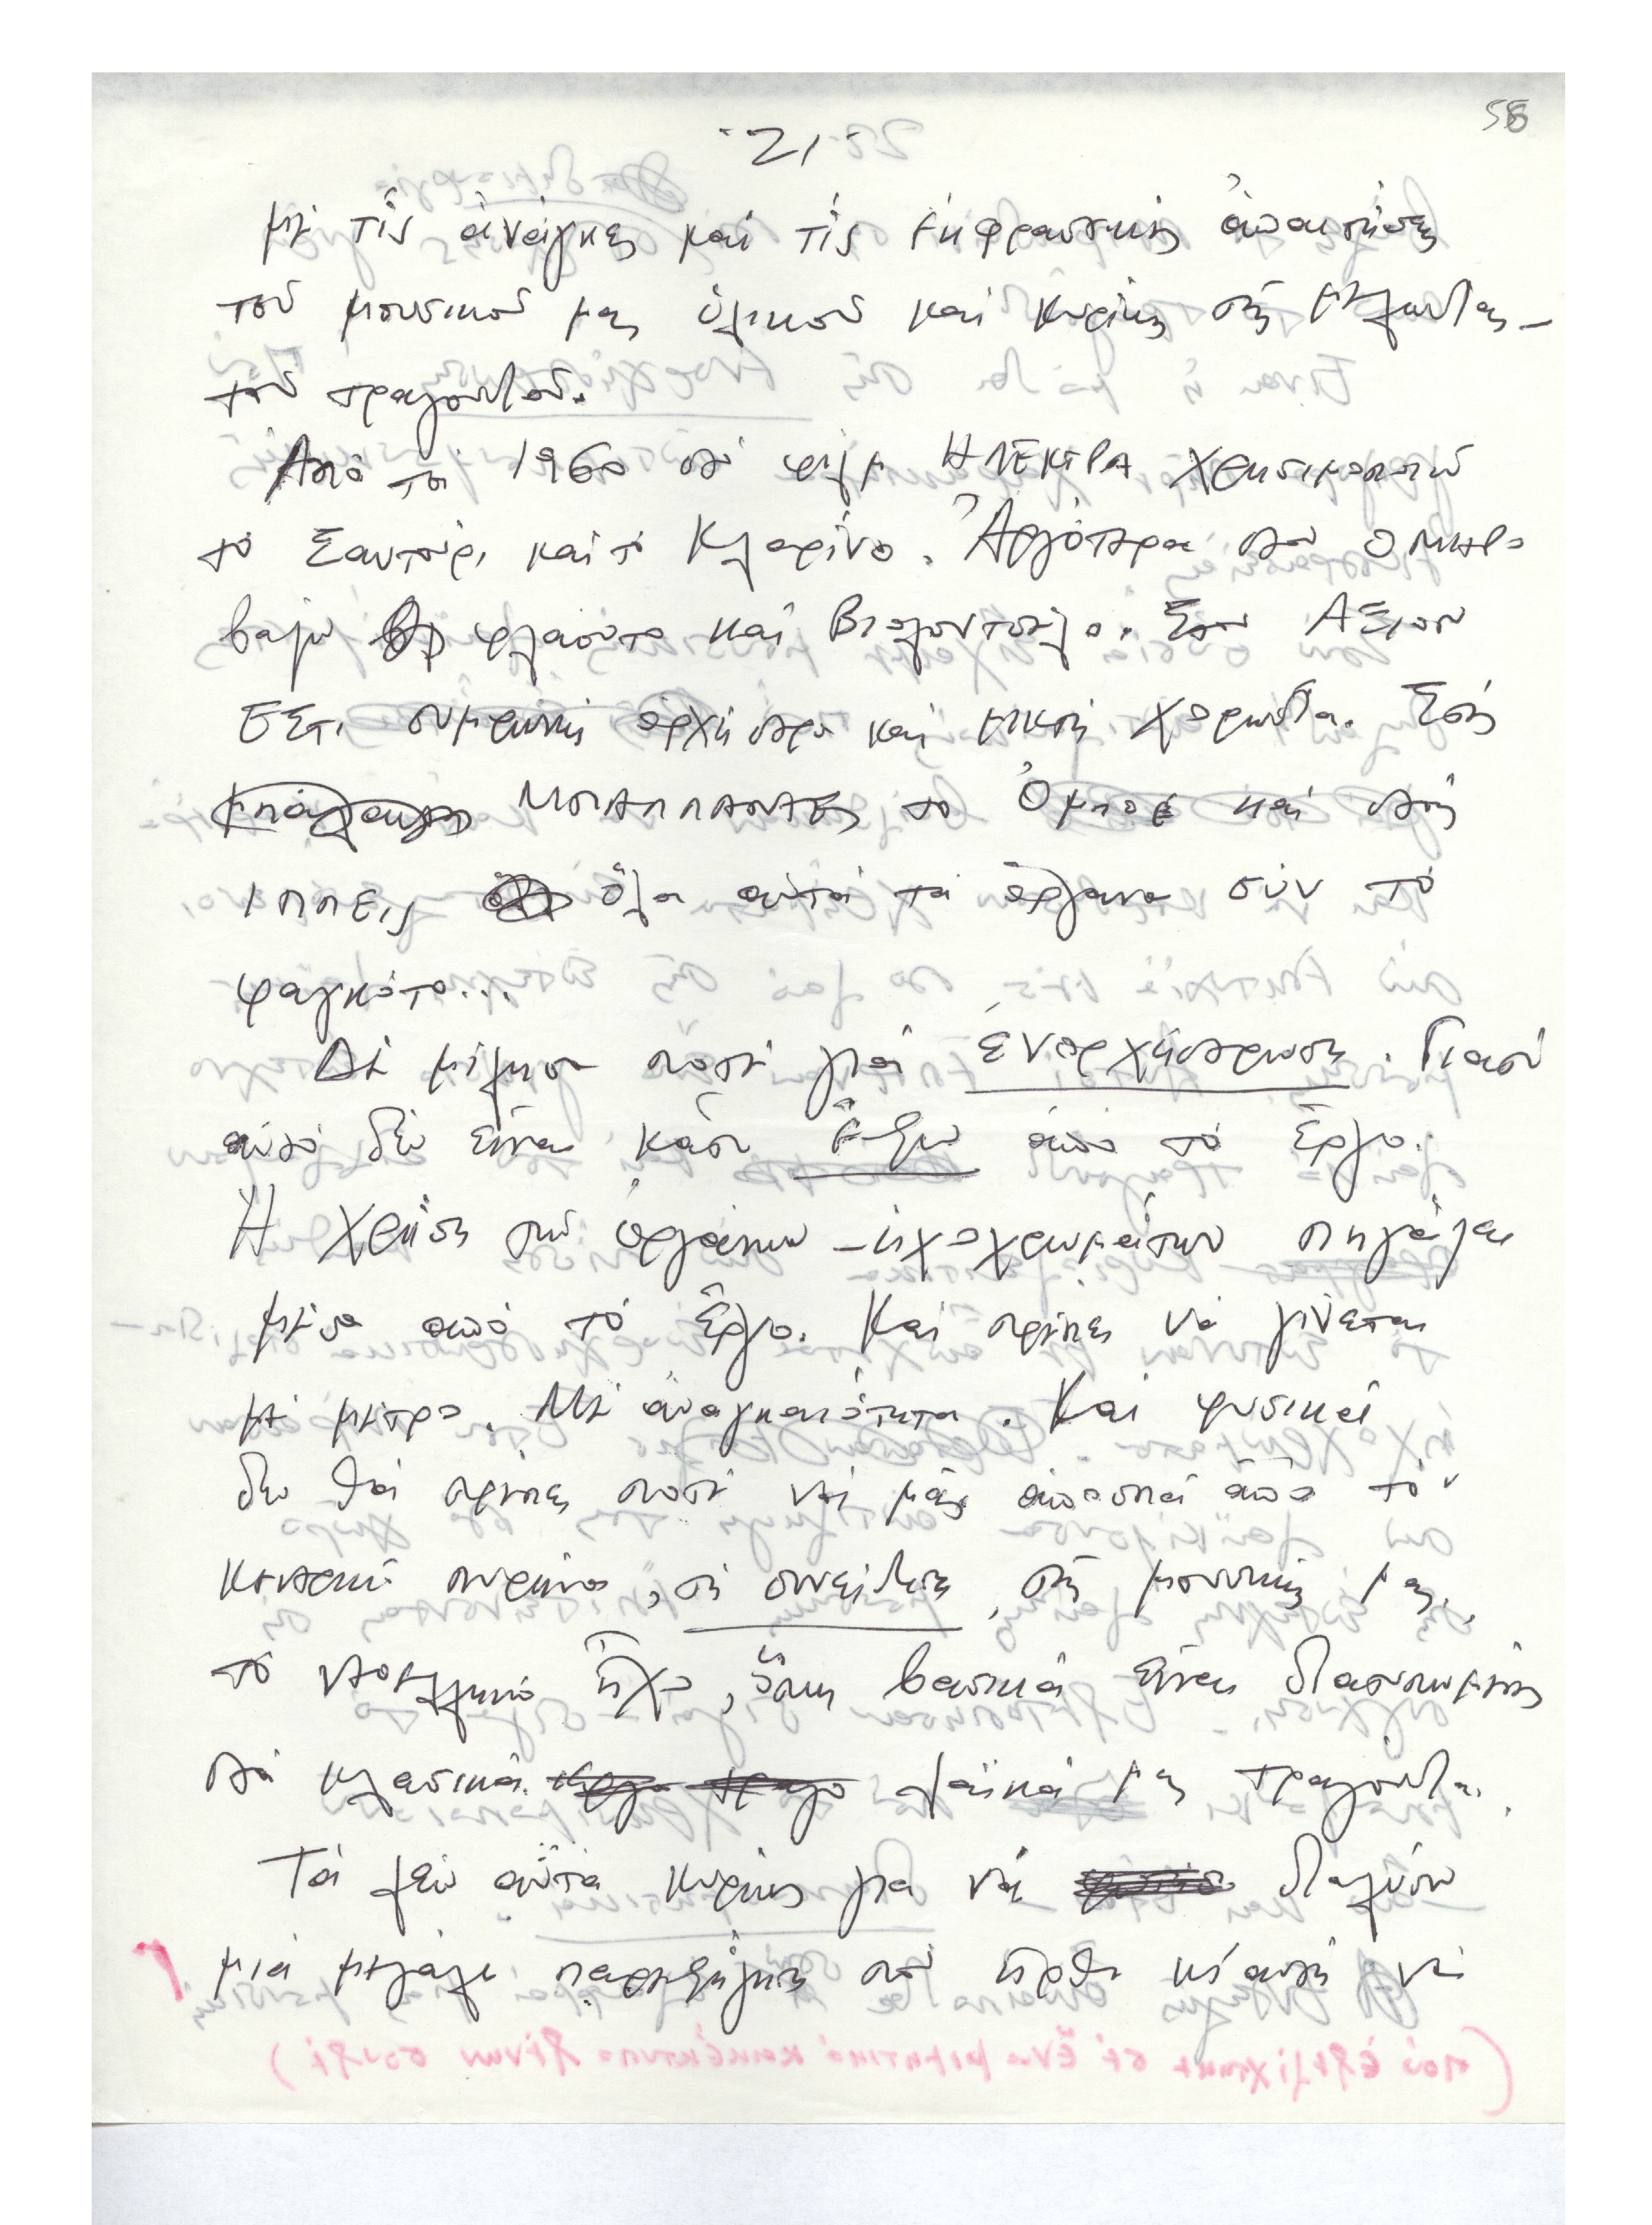 58
-21-
μὲ τὶς ἀνάγκες καὶ τὶς ἐκφραστικές ἀπαιτήσεις
τοῦ μουσικοῦ μας ὑλικοῦ καὶ κυρίως τῆς μελωδίας -
τοῦ τραγουδιοῦ.
Ἀπὸ τὸ 1960 στὸ φίλμ ΗΛΕΚΤΡΑ χρησιμοποιῶ
τὸ Σαντούρι καὶ τὸ Κλαρίνο. Ἀργότερα στὸν ΟΜΗΡΟ
βάζω φλάουτο καὶ Βιολοντσέλο. Στὸ ΑΞΙΟΝ
ΕΣΤΙ συμφωνική ὀρχήστρα καὶ μικτή χορωδία. Στίς
ΜΠΑΛΛΑΝΤΕΣ τὸ Ὄμποε καὶ στούς
ΙΠΠΕΙΣ ὅλα αὐτά τὰ ὄργανα σύν τὸ
φαγκότο...
Δὲ μίλησα ποτὲ γιὰ ἐνορχήστρωση. Γιατί
αὐτὸ δὲν εἶναι κάτι ἔξω ἀπὸ τὸ ἔργο.
Ἡ χρήση τῶν ὀργάνων - ἠχοχρωμάτων πηγάζει
μέσα ἀπὸ τὸ ἔργο. Καὶ πρέπει νὰ γίνεται
μὲ μέτρο. Μὲ ἀναγκαιότητα. Καὶ φυσικά
δὲν θὰ πρέπει ποτὲ νὰ μᾶς ἀποσπᾶ ἀπὸ τὸν
κεντρικό πυρήνα, τὴ συνείδηση, τῆς μουσικῆς μας,
τὸ νεοελληνικό ἦχο, ὅπως βασικά εἶναι διατυπωμένος
στὰ κλασικά λαϊκά μας τραγούδια.
Τὰ λέω αὐτὰ κυρίως γιὰ νὰ διαλύσω
μιὰ μεγάλη παρεξήγηση ποὺ ἦρθε κι αὐτὴ νὰ